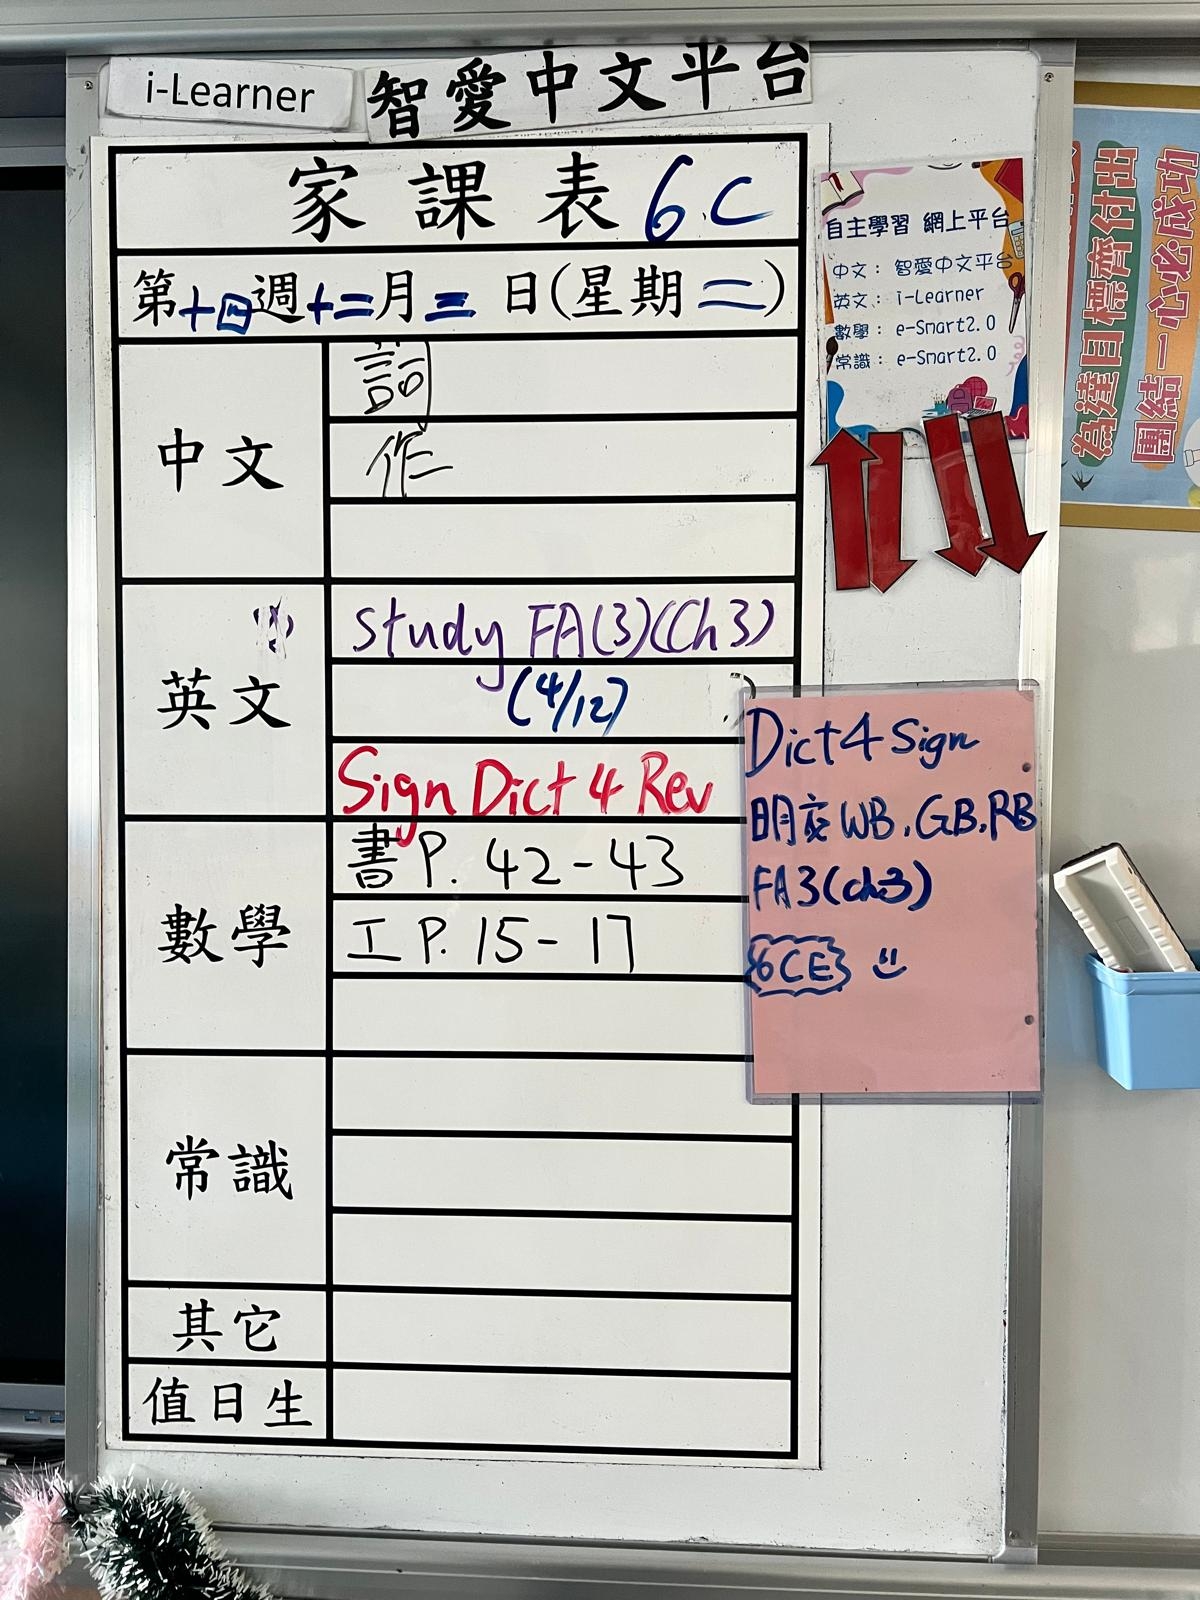 i-Learner 智愛中文平台
家課表 6C
第十四週十二月三日(星期二)
中文
詞
作
英文
Study FA(3)(Ch3)
(4/12)
Sign Dict 4 Rev
數學
書 P. 42-43
工 P. 15-17
常識
其它
值日生
自主學習 網上平台
中文： 智愛中文平台
英文： i-Learner
數學： e-Smart2.0
常識： e-Smart2.0
Dict 4 Sign
明交 WB, GB, RB
FA3(ch3)
6CE
為達目標齊付出
團結一心必成功